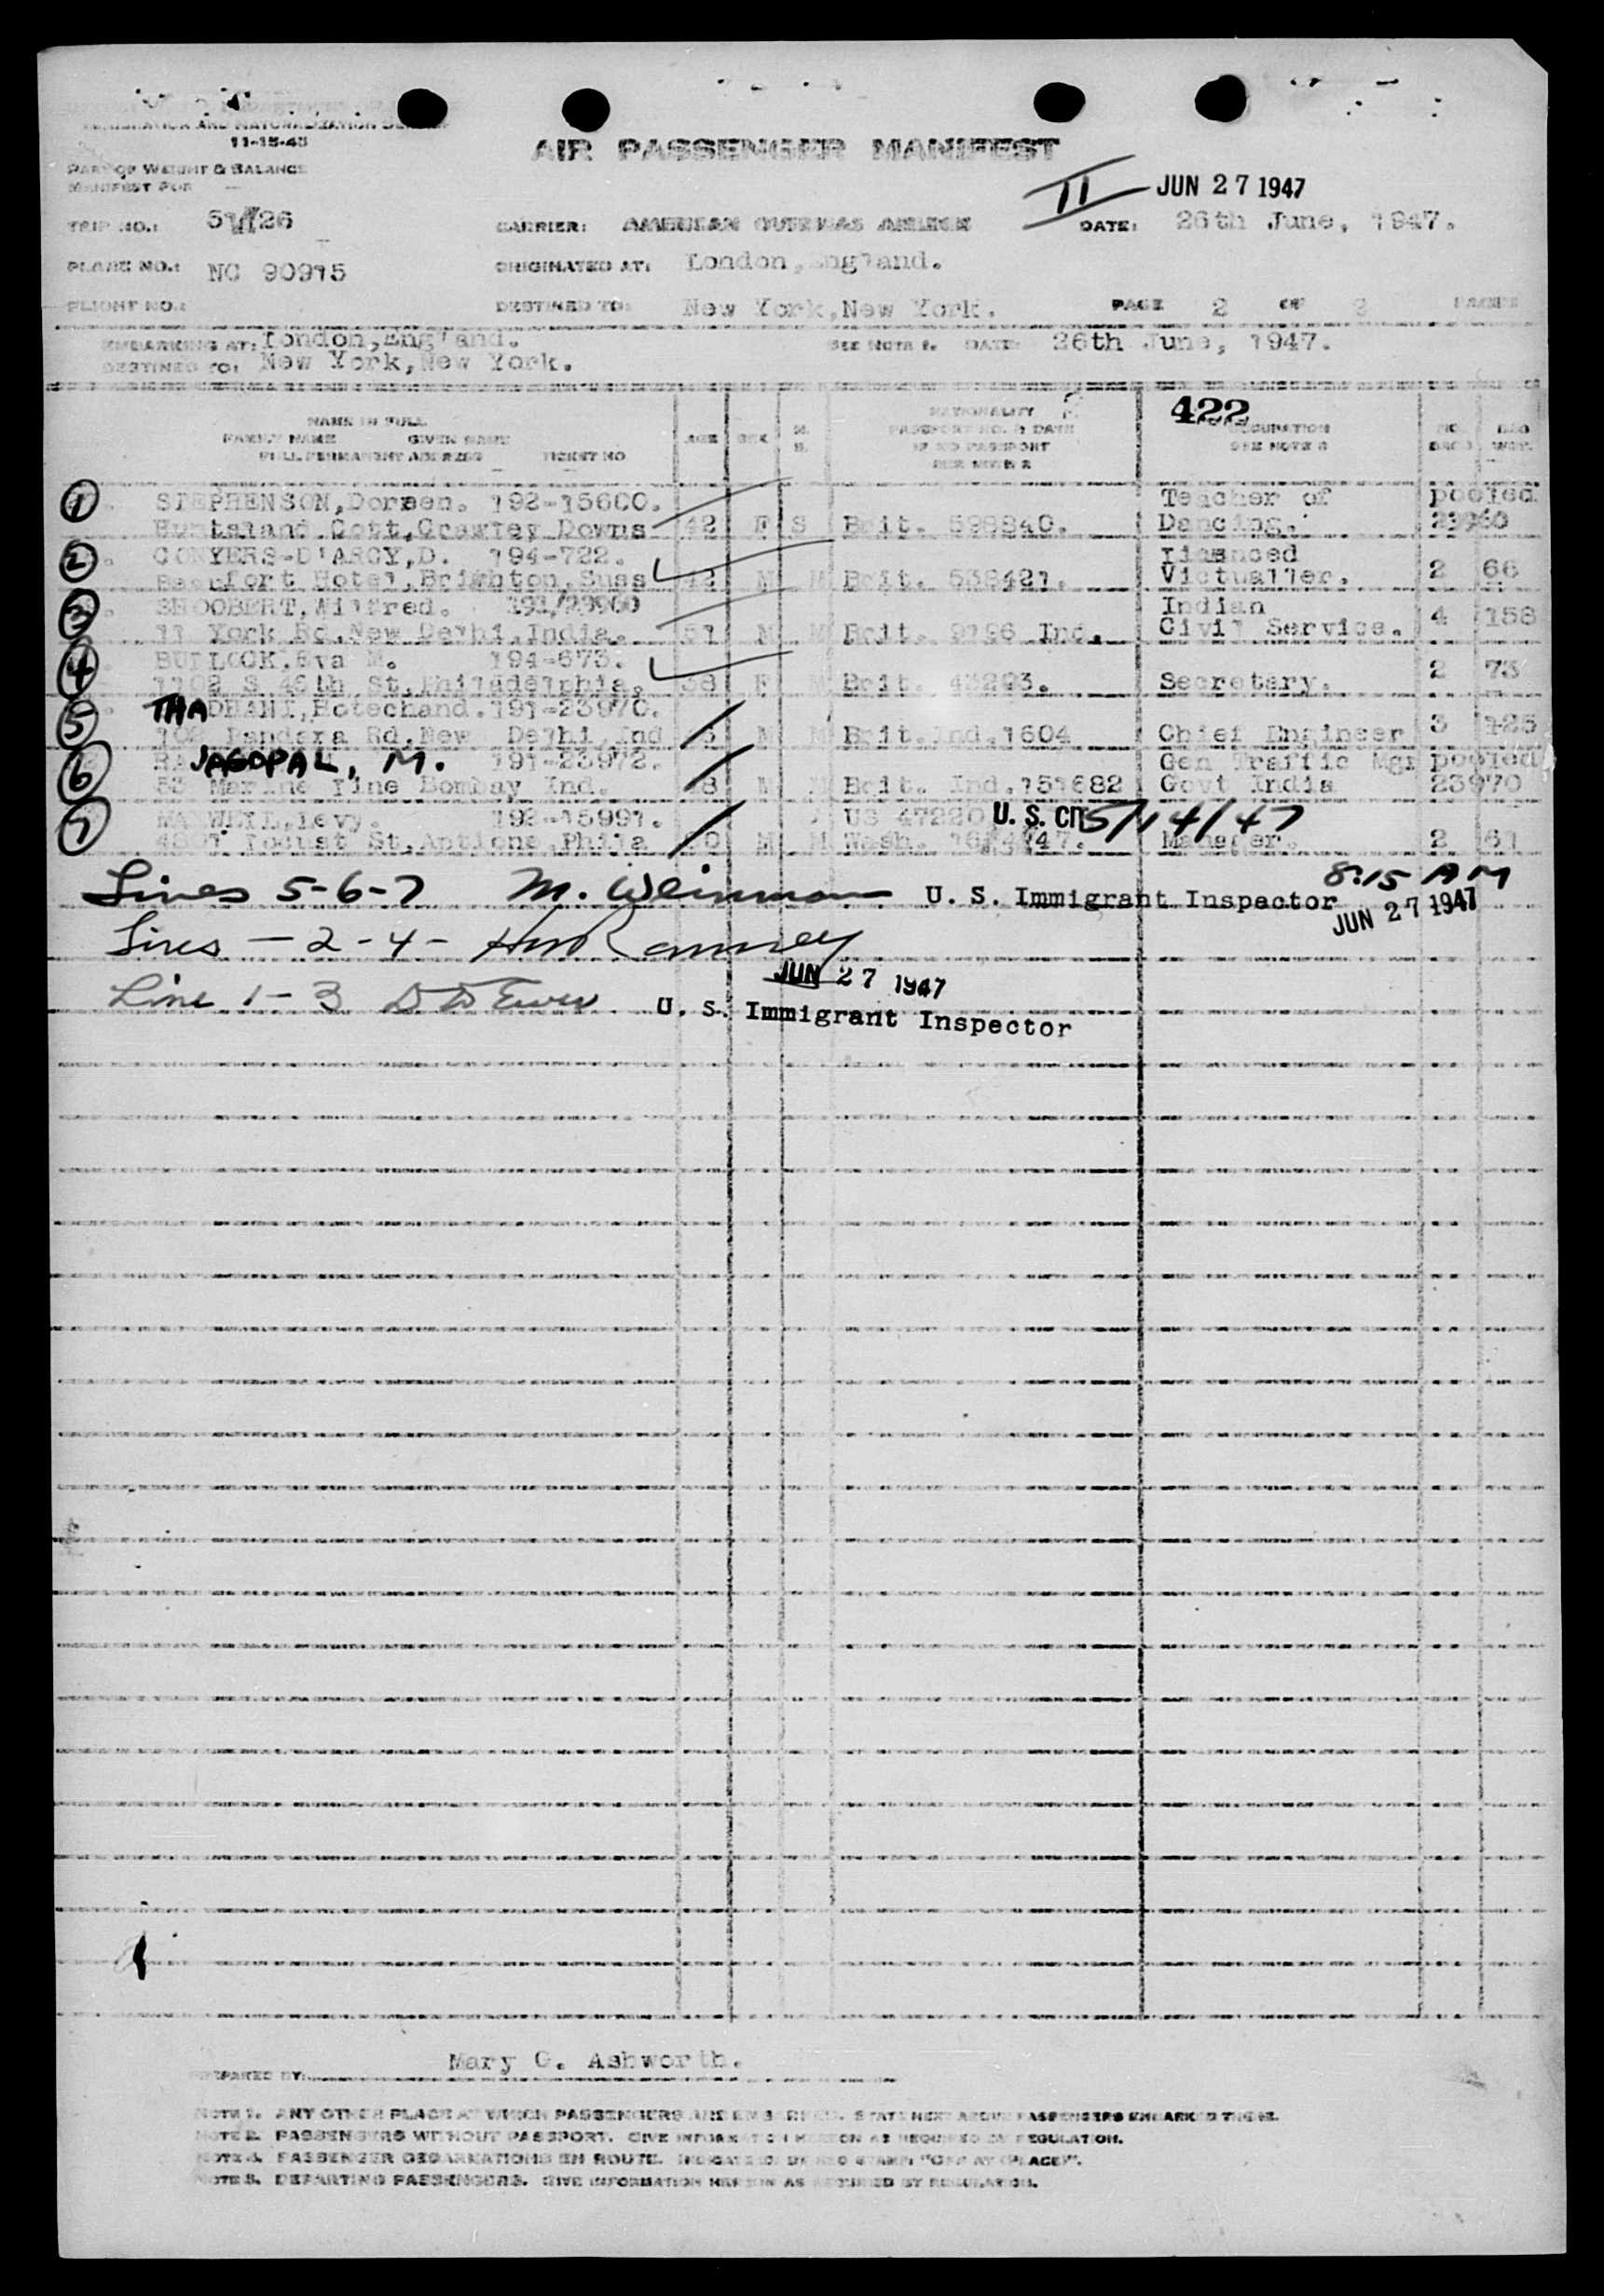 IMMIGRATION AND NATURALIZATION
11-15-45
AIR PASSENGER MANIFEST
PART OF WEIGHT & BALANCE
MANIFEST FOR
11 JUN 27 1947
TRIP NO.: 26
CARRIER: AMERICAN OVERSEAS AIRLINES
DATE: 26th June, 1947.
PLANE NO.: NC 90915
ORIGINATED AT: London, England.
FLIGHT NO.:
DESTINED TO: New York, New York.
PAGE 2 OF 2 PAGES
EMBARKING AT: London, England.
SEE NOTE 1. DATE: 26th June, 1947.
DESTINED TO: New York, New York.
422
NAME IN FULL
FAMILY NAME GIVEN NAME
FULL PERMANENT ADDRESS TICKET NO
AGE SEX M. S.
NATIONALITY
PASSPORT NO. & DATE
IF NO PASSPORT
SEE NOTE 2
OCCUPATION
SEE NOTE 5
NO. BAGS BAG WGT.
1 STEPHENSON, Doreen. 192-15600. Teacher of pooled
Cott, Crawley Downs 42 F S Brit. 598840. Dancing. 23960
2 CONYERS-D'ARCY, D. 194-722. Licenced
Hotel, Brighton, Suss 42 M M Brit. 538421. Victualler. 2 66
3 SHOOBERT, Wilfred. 191/23960 Indian
11 York Rd, New Delhi, India. 51 M M Brit. 9196 Ind. Civil Service. 4 158
4 BULLOCK, Eva M. 194-673.
1102 S 46th St, Philadelphia. 38 F M Brit. 43293. Secretary. 2 73
5 THADHANI, Hotechand. 191-23970.
102 Pandara Rd, New Delhi, Ind M M Brit. Ind. 1604 Chief Engineer 3 125
6 RAJAGOPAL, M. 191-23972. Gen Traffic Mgr pooled
53 Marine Line Bombay Ind. 8 M M Brit. Ind. 151682 Govt India 23970
7 Levy. 192-15991. US 47220 U. S. CIT 5/14/47
Locust St, Phila 0 M M Wash. Manager. 2 61
8:15 AM
Lines 5-6-7 M. Weinman U. S. Immigrant Inspector
JUN 27 1947
Lines - 2-4- Ranney
JUN 27 1947
Line 1-3 D W Ewen U. S. Immigrant Inspector
PREPARED BY: Mary C. Ashworth.
NOTE 1. ANY OTHER PLACE AT WHICH PASSENGERS ARE EMBARKED. STATE NEXT ABOVE PASSENGERS EMBARKED THERE.
NOTE 2. PASSENGERS WITHOUT PASSPORT. GIVE INFORMATION HEREON AS REQUIRED BY REGULATION.
NOTE 4. PASSENGER DEBARKATIONS EN ROUTE. INDICATED BY RED STAMP "OFF AT (PLACE)".
NOTE 5. DEPARTING PASSENGERS. GIVE INFORMATION HEREON AS REQUIRED BY REGULATION.